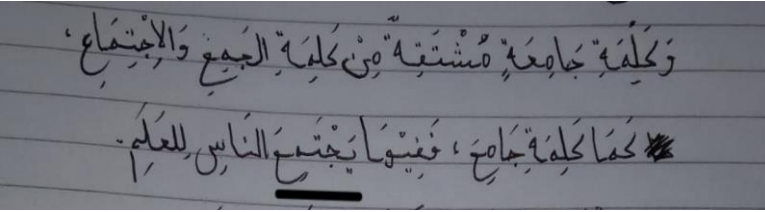 وَكَلِمَةِ جَامِعَةٍ مُشْتَقِةً مِنْ كَلِمَةِ الجَمِعِ وَالإِجْتِمَاعِ،
كَمَا كَلِمَةِ جَامِعَ، فَفِيهَا يَجْتَمِعَ النَاسِ لِلعَلِمِ.